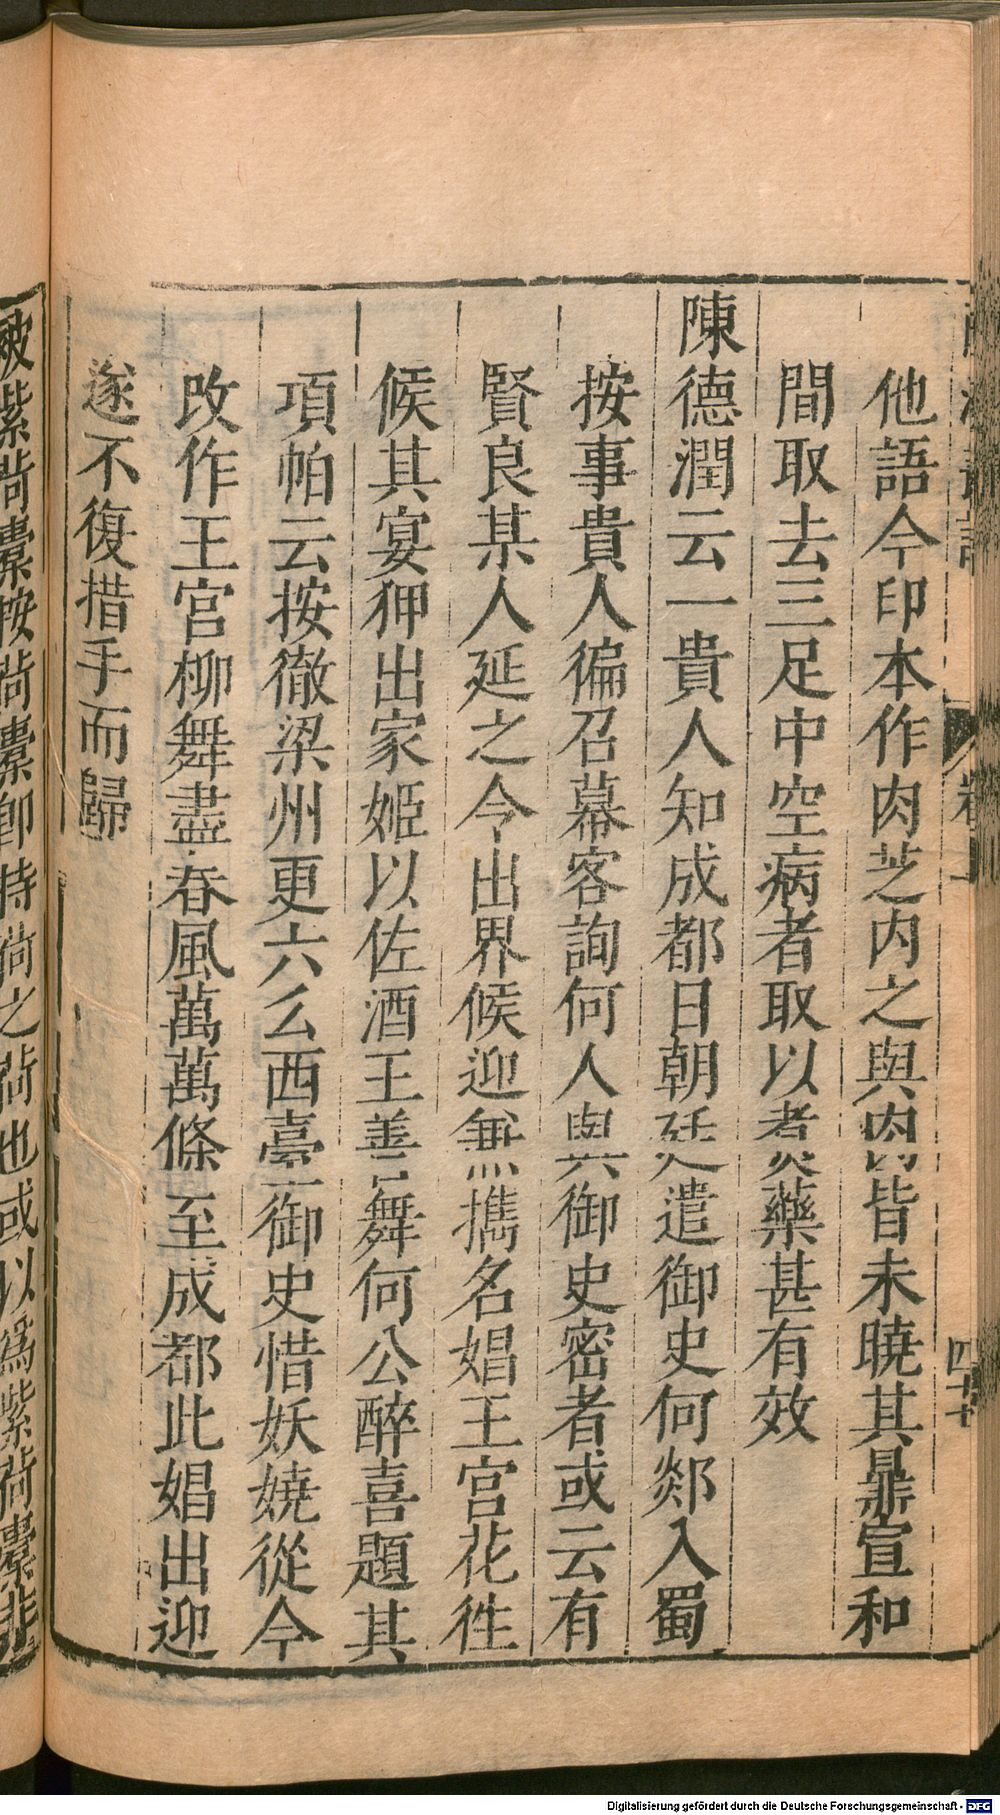 他語今印本作肉芝内之與肉皆未曉其鼎宣和
間取去三足中空病者取以煮藥甚有效
陳德潤云一貴人知成都日朝廷遣御史何郯入蜀
按事貴人徧召幕客詢何人與御史密者或云有
賢良某人延之令出界候迎無攜名娼王宮花徃
候其宴狎出家姬以佐酒王善舞何公醉喜題其
項帕云按徹梁州更六么西臺御史惜妖嬈從今
改作王宮柳舞盡春風萬萬條至成都此娼出迎
遂不復措手而歸
四十七
被紫荷橐按荷橐卽持荷之荷也或以爲紫荷橐非
Digitalisierung gefördert durch die Deutsche Forschungsgemeinschaft - DFG